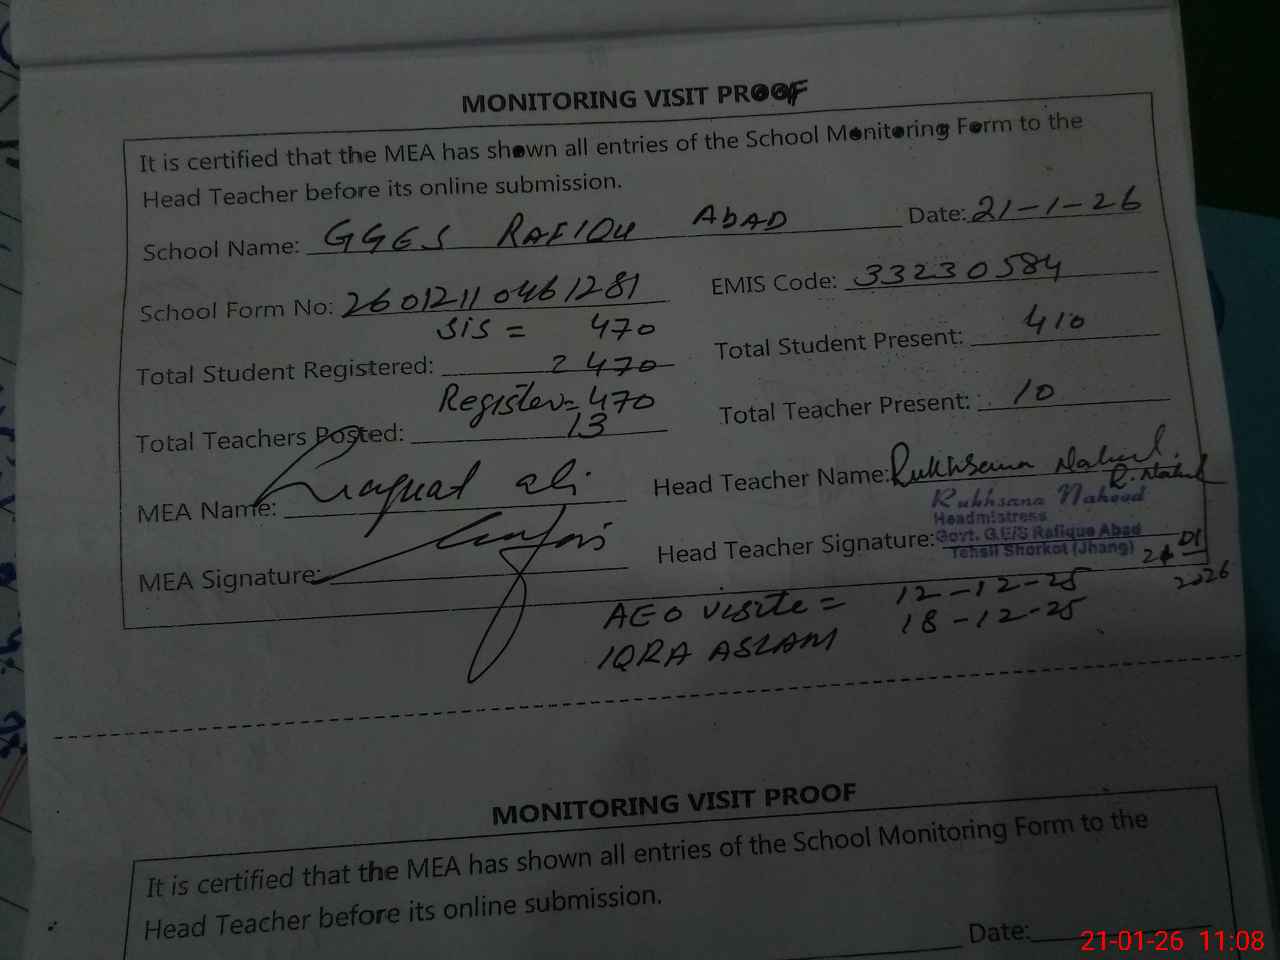 MONITORING VISIT PROOF
It is certified that the MEA has shown all entries of the School Monitoring Form to the
Head Teacher before its online submission.
School Name: GGES RAFIQU AbAD Date: 21-1-26
School Form No: 26012110461281 EMIS Code: 33230584
SiS = 470
Total Student Registered: 2 470 Total Student Present: 410
Register= 470
Total Teachers Posted: 13 Total Teacher Present: 10
MEA Name: Liaquat ali Head Teacher Name: Rukhsana Naheed
R. Naheed
Rukhsana Naheed
Headmistress
MEA Signature: Head Teacher Signature: Govt. G.E/S Rafique Abad
Tehsil Shorkot (Jhang)
21 01
2026
AEO visite = 12-12-25
IQRA ASLAM 18-12-25
MONITORING VISIT PROOF
It is certified that the MEA has shown all entries of the School Monitoring Form to the
Head Teacher before its online submission.
Date:
21-01-26 11:08